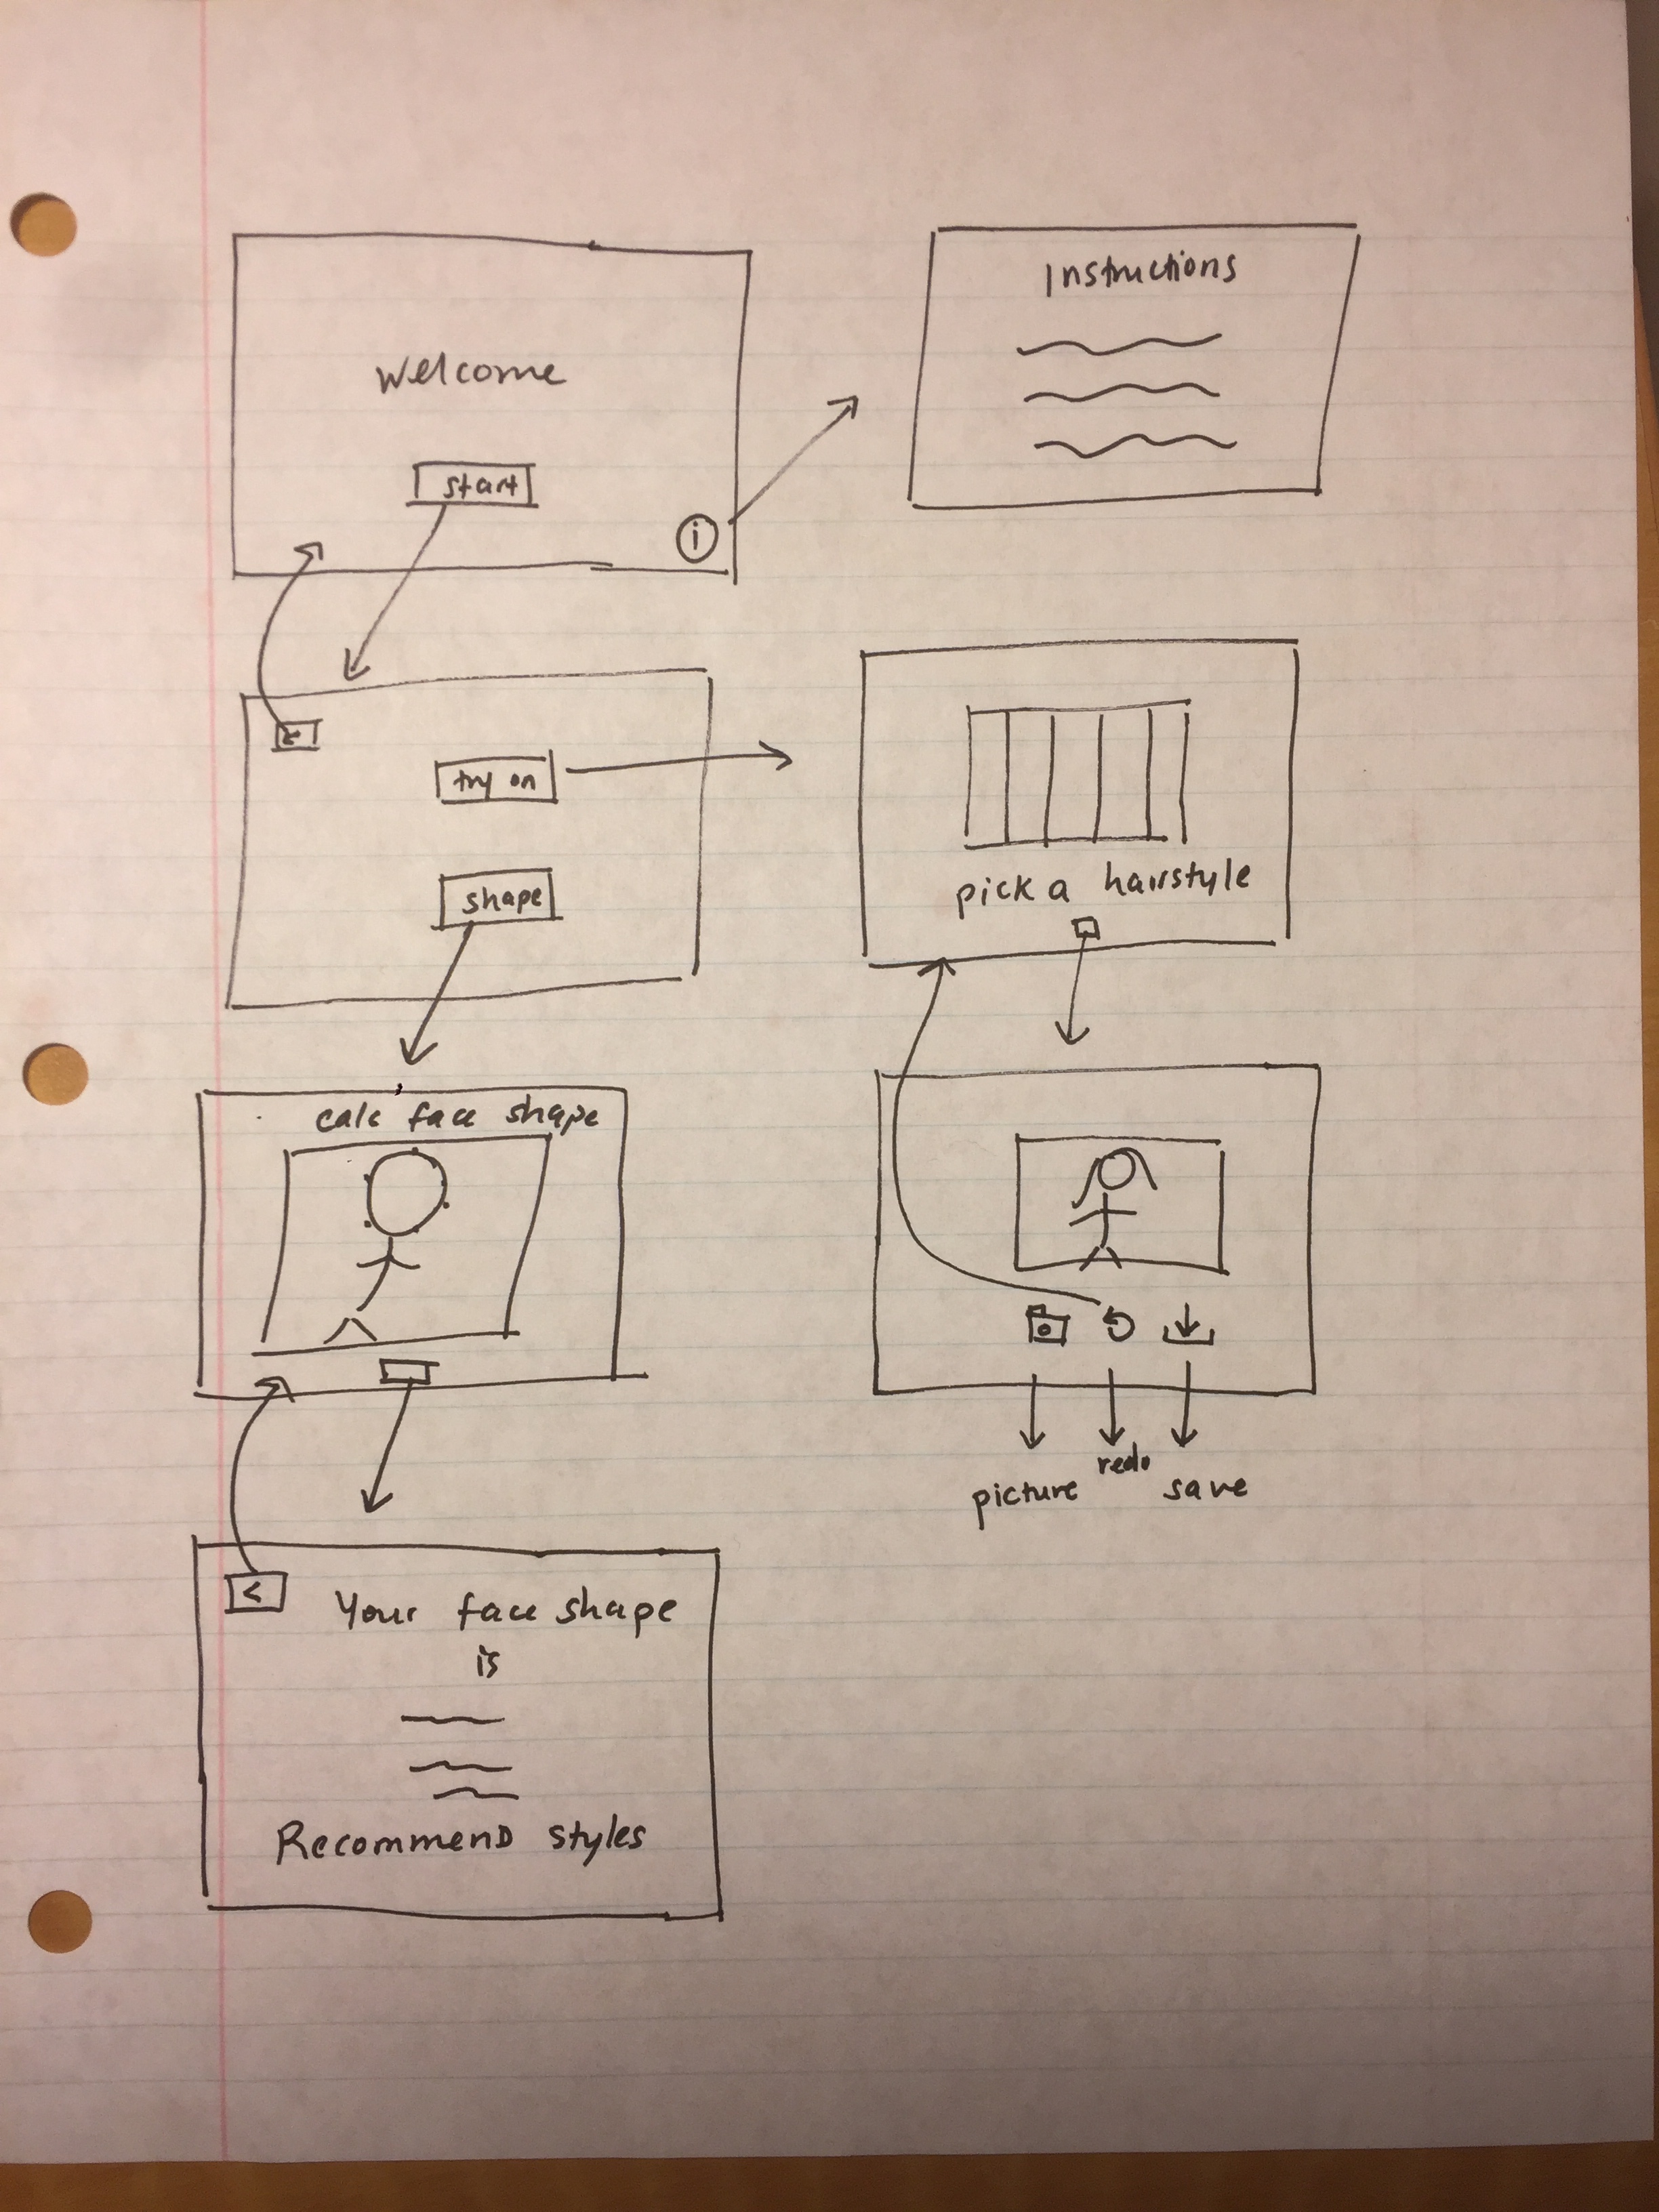 Welcome
start
i
Instructions
try on
shape
pick a hairstyle
calc face shape
picture
redo
save
<
Your face shape
is
Recommend styles